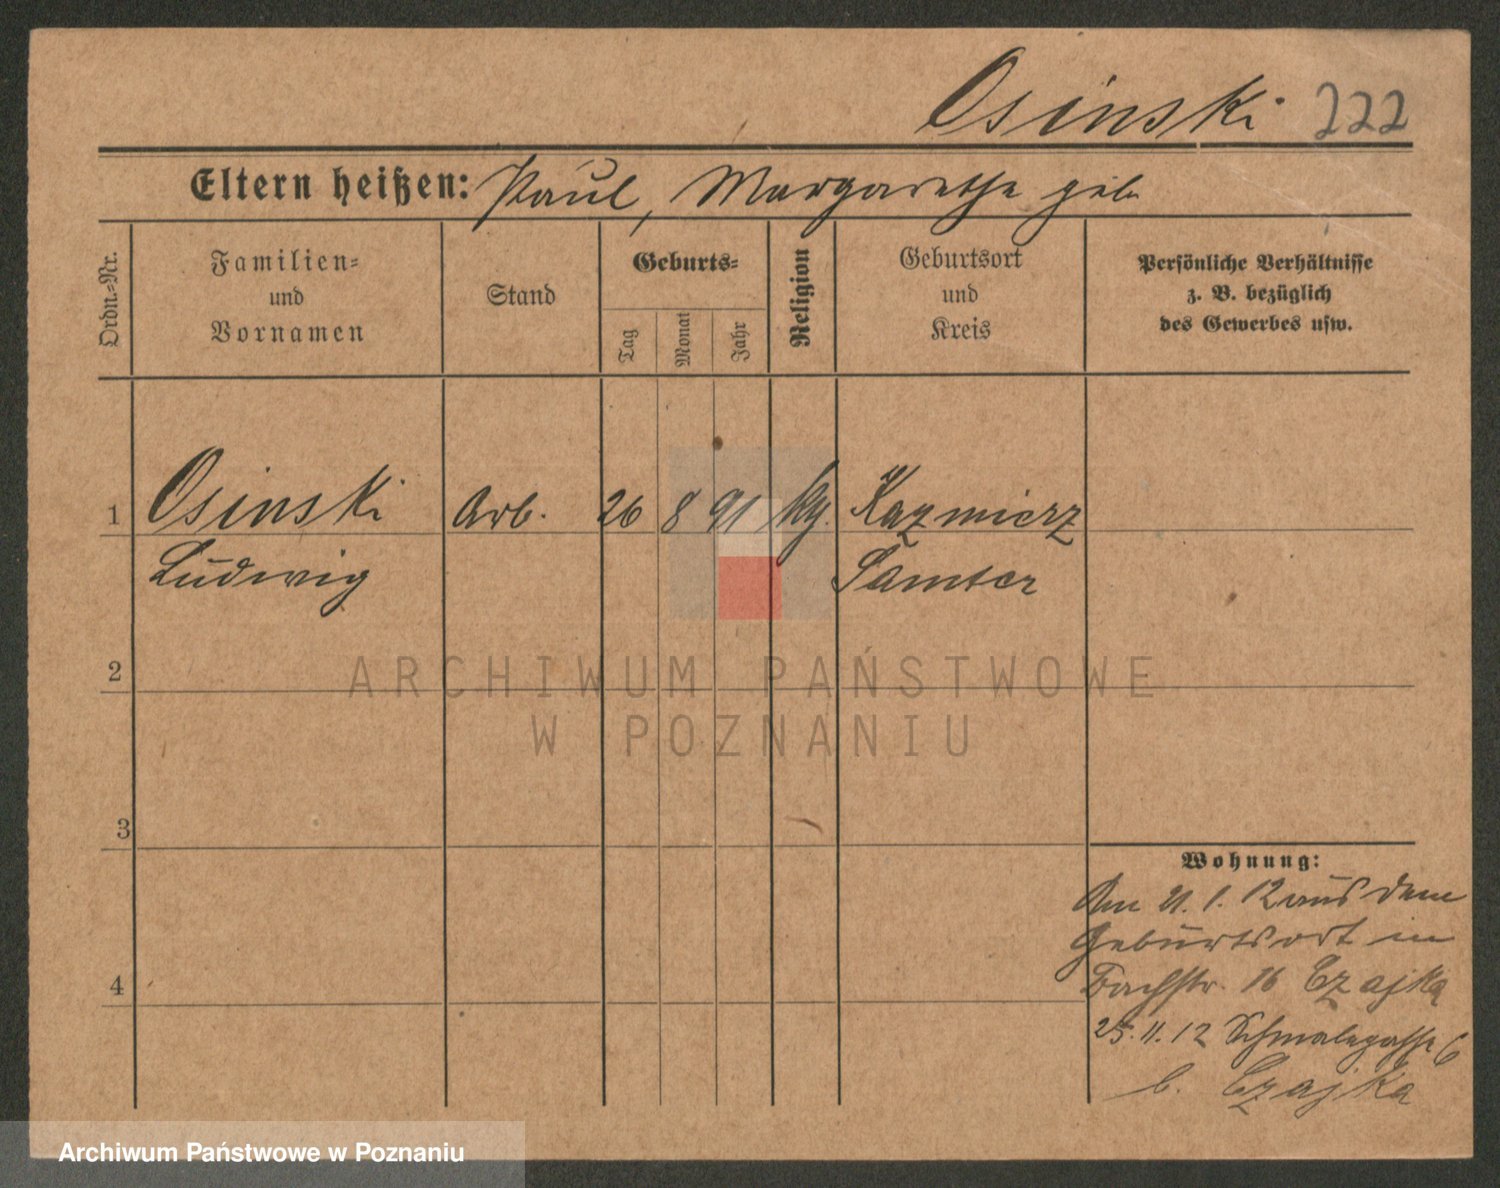 Osinski 222
Eltern heißen: Paul, Margarethe geb
Ordn.-Nr.
Familien-
und
Vornamen
Stand
Geburts-
Tag
Monat
Jahr
Religion
Geburtsort
und
Kreis
Persönliche Verhältnisse
z. B. bezüglich
des Gewerbes usw.
1 Osinski Arb. 26 8 91 Kazmierz
Ludwig Samter
2
ARCHIWUM PAŃSTWOWE
W POZNANIU
3
Wohnung:
Am 21. 1. 12 aus dem
Geburtsort in
Bachstr. 16 Czajka
4
25. 11. 12 Schmalegasse 6
b. Czajka
Archiwum Państwowe w Poznaniu